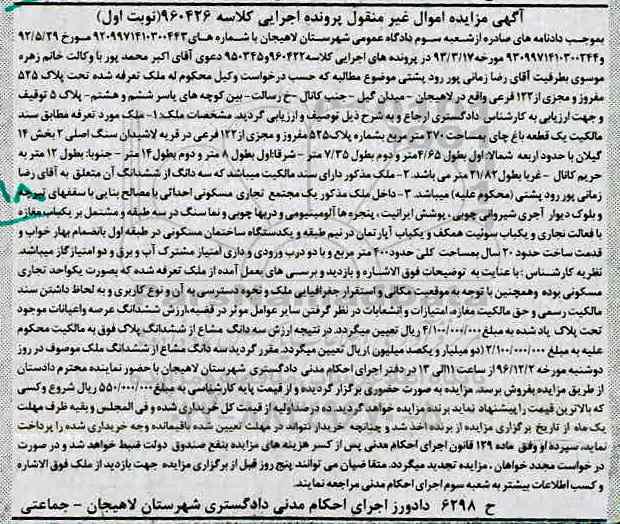 آگهی مزایده اموال غیر منقول پرونده اجرایی کلاسه ۹۶۰۴۲۶(نوبت اول)
بموجب دادنامه های صادره ازشعبه سوم دادگاه عمومی شهرستان لاهیجان با شماره های۹۲۰۹۹۷۱۴۱۰۳۰۰۴۴۳ مورخ ۹۲/۵/۲۹
و۹۳۰۹۹۷۱۴۱۰۳۰۰۲۴۴ مورخه۹۳/۳/۱۷ در پرونده های اجرایی کلاسه۹۶۰۴۲۲و۹۵۰۳۴۵ دعوی آقای اکبر محمد پور با وکالت خانم زهره
موسوی بطرفیت آقای رضا زمانی پور رود پشتی موضوع مطالبه که حسب درخواست وکیل محکوم له ملک تعرفه شده تحت پلاک ۵۲۵
مفروز و مجزی از۱۲۲ فرعی واقع در لاهیجان – میدان گیل – جنب کانال –خ رسالت– بین کوچه های یاسر ششم و هشتم– پلاک ۵ توقیف
و جهت ارزیابی به کارشناس دادگستری ارجاع و به شرح ذیل توصیف و ارزیابی گردید. مشخصات ملک:۱- ملک مورد تعرفه مطابق سند
مالکیت یک قطعه باغ چای بمساحت ۲۷۰ متر مربع بشماره پلاک۵۲۵ مفروز و مجزی از۱۲۲ فرعی در قریه لاشیدان سنگ اصلی ۲ بخش ۱۴
گیلان با حدود اربعه شمالا: اول بطول ۴/۶۵متر و دوم بطول ۷/۳۵ متر – شرقا:اول بطول ۸ متر و دوم بطول۱۴ متر – جنوبا: بطول ۱۲ متر به
حریم کانال – غربا بطول۲۱/۸۲ متر می باشد. ۲- ملک مذکور دارای سند مالکیت میباشد که سه دانگ از ششدانگ آن متعلق به آقای رضا
زمانی پور رود پشتی (محکوم علیه) میباشد. ۳- داخل ملک مذکور یک مجتمع تجاری مسکونی احداثی با مصالح بنایی با سقفهای تیرچه
و بلوک دیوار آجری شیروانی چوبی ، پوشش ایرانیت ، پنجره ها آلومینیومی و دربها چوبی و نما سنگ در سه طبقه و مشتمل بر یکباب مغازه
با فعالت تجاری و یکباب سوئیت همکف و یکباب آپارتمان در نیم طبقه و یکدستگاه ساختمان مسکونی در طبقه اول بانضمام بهار خواب و
قدمت ساخت حدود ۲۰ سال بمساحت کلی حدود۴۰۰ متر مربع و با دو درب ورودی و داری امتیاز مشترک آب و برق و دو امتیازگاز میباشد.
نظریه کارشناس : با عنایت به توضیحات فوق الاشاره و بازدید و بررسی های بعمل آمده از ملک تعرفه شده که بصورت یکواحد تجاری
مسکونی بوده وهمچنین با توجه به موقعیت مکانی و استقرار جغرافیایی ملک و نحوه دسترسی به آن و نوع کاربری و به لحاظ داشتن سند
مالکیت رسمی و حق مالکیت مغازه، امتیازات و انشعابات در نظر گرفتن سایر عوامل موثر در قضیه،ارزش ششدانگ عرصه واعیانات موجود
تحت پلاک یاد شده به مبلغ۴/۱۰۰/۰۰۰/۰۰۰ ریال تعیین میگردد. در نتیجه ارزش سه دانگ مشاع از ششدانگ پلاک فوق به مالکیت محکوم
علیه به مبلغ ۲/۱۰۰/۰۰۰/۰۰۰ (دو میلیار و یکصد میلیون )ریال تعیین میگردد. مقرر گردید سه دانگ مشاع از ششدانگ ملک موصوف در روز
دوشنبه مورخه ۹۶/۱۲/۲ از ساعت ۱۱الی ۱۲ در دفتر اجرای احکام مدنی دادگستری شهرستان لاهیجان با حضور نماینده محترم دادستان
از طریق مزایده بفروش برسد. مزایده به صورت حضوری برگزار گردیده و از قیمت پایه کارشناسی به مبلغ۵۵۰/۰۰۰/۰۰۰ ریال شروع وکسی
که بالاترین قیمت را پیشنهاد نماید برنده مزایده خواهد گردید. ده درصداولیه از قیمت کل خریداری شده و فی المجلس و بقیه ظرف مهلت
یک ماه از تاریخ برگزاری مزایده از برنده اخذ شد و چنانچه خریدار نتواند در مهلت تعیین شده باقیمانده وجه خریداری شده را پرداخت
نماید، سپرده او وفق ماده ۱۲۹ قانون اجرای احکام مدنی پس از کسر هزینه های مزایده بنفع صندوق دولت ضبط خواهد شد و در صورت
در خواست مجدد خواهان ، مزایده تجدید میگردد. متقاضیان می توانند پنج روز قبل از برگزاری مزایده جهت بازدید از ملک فوق الاشاره
و کسب اطلاعات بیشتر به شعبه سوم اجرای احکام مدنی مراجعه نمایند.
ح ۶۲۹۸ دادورز اجرای احکام مدنی دادگستری شهرستان لاهیجان – جماعتی